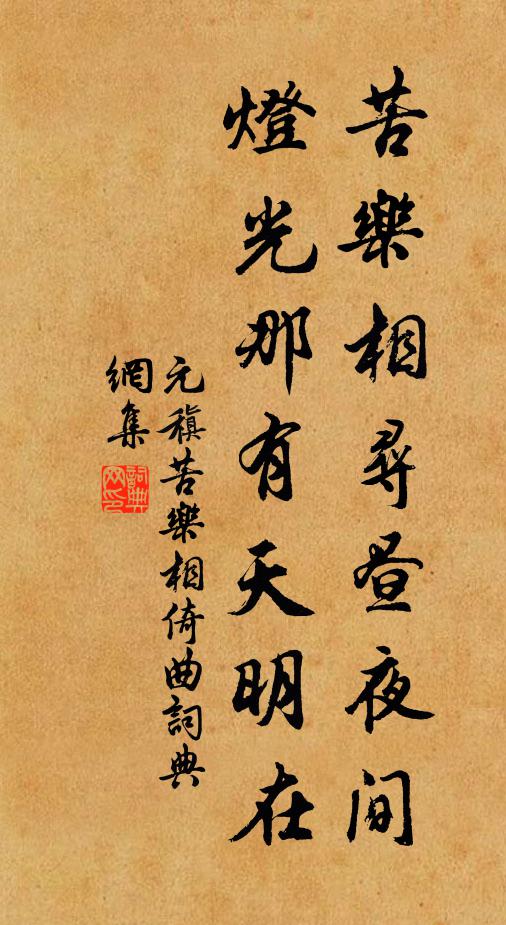 苦樂相尋晝夜間
燈光那有天明在
元稹苦樂相倚曲詞典
網集
詞典
网印